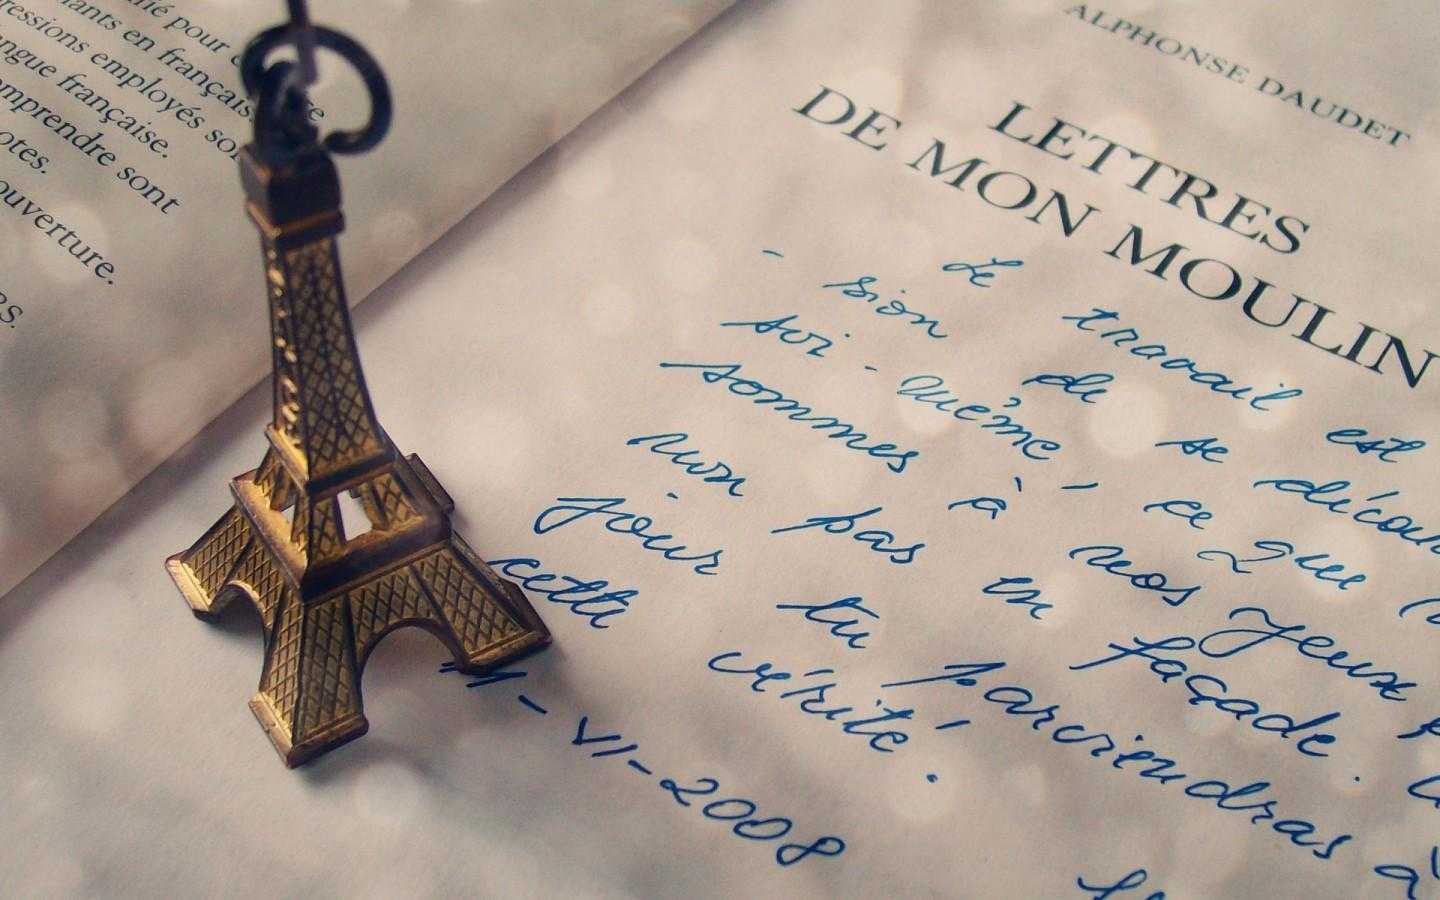 pour
en français
ressions employés
ngue française.
mprendre sont
otes.
ouverture.
RS.
ALPHONSE DAUDET
LETTRES
DE MON MOULIN
Le travail est
- sion de se décou
soi-même, ce que
sommes à nos yeux
non pas en façade.
jour tu parviendras à
cette vérité.
- VI - 2008